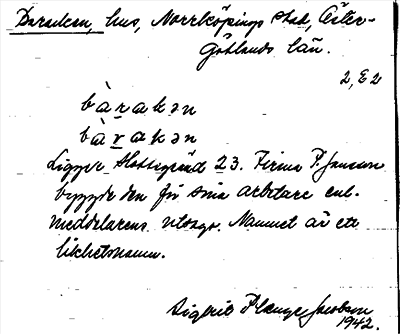 Baracken, hus, Norrköpings stad, Öster-
götlands län.
2, E2
bàrakən
bàrakən
Ligger Slottsgränd 23. Firma P. Janson
byggde den för sina arbetare enl.
meddelarens utsago. Namnet är ett
likhetsnamn.
Sigrid Jacobson
1942.